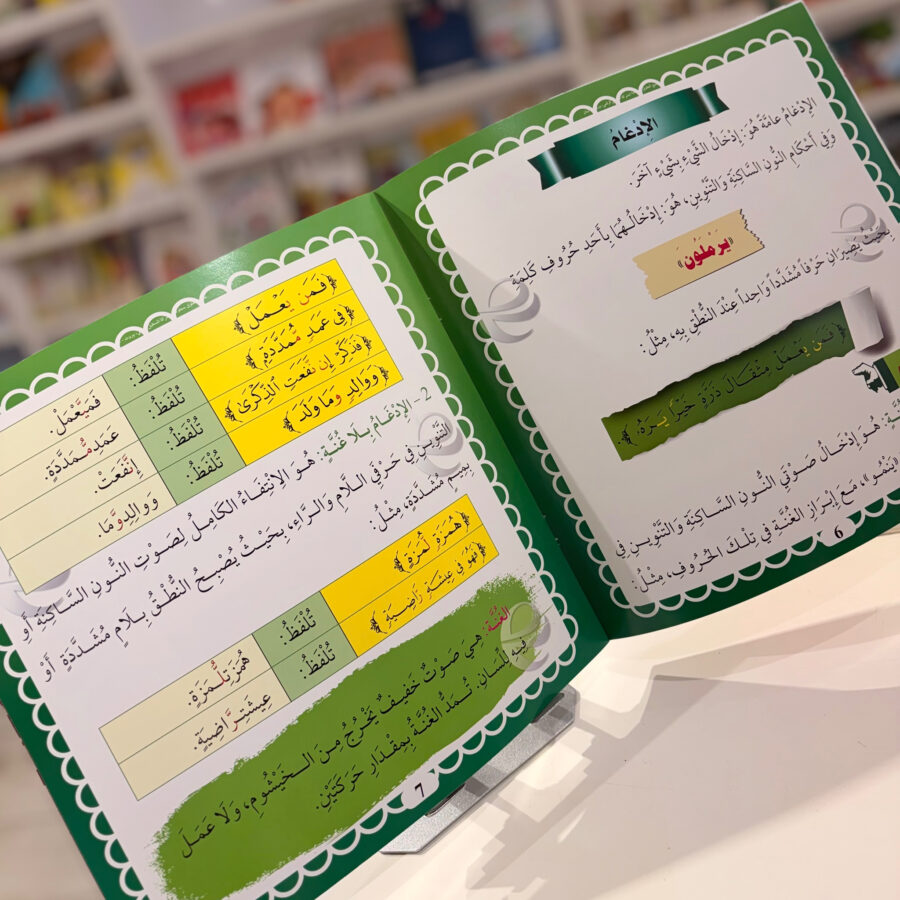 الإِدْغَامُ
الإِدْغَامُ عَامَّةً هُوَ: إِدْخَالُ الشَّيْءِ بِشَيْءٍ آخَرَ.
وَفِي أَحْكَامِ النُّونِ السَّاكِنَةِ وَالتَّنْوِينِ، هُوَ: إِدْخَالُـهُمَا بِأَحَدِ حُرُوفِ كَلِمَةِ
«يَرْمَلُونَ»
بِحَيْثُ يَصِيرَانِ حَرْفاً مُشَدَّداً وَاحِداً عِنْدَ النُّطْقِ بِهِ، مِثْلُ:
﴿فَمَن يَعْمَلْ مِثْقَالَ ذَرَّةٍ خَيْراً يَرَهُ﴾.
هُوَ إِدْخَالُ صَوْتَيِ النُّـونِ السَّـاكِنَةِ وَالتَّنْوِينِ فِي
«يَنْمُو»، مَعَ إِبْرَازِ الغُنَّةِ فِي تِلْكَ الحُرُوفِ، مِثْلُ:
6
﴿فَمَن يَعْمَلْ﴾ تُلْفَظُ: فَمَيَّعْمَلْ.
﴿فِي عَمَدٍ مُّمَدَّدَةٍ﴾ تُلْفَظُ: عَمَدِمُّمَدَّدَةٍ.
﴿فَذَكِّرْ إِن نَّفَعَتِ الذِّكْرَىٰ﴾ تُلْفَظُ: إِنَّفَعَتْ.
﴿وَوَالِدٍ وَمَا وَلَدَ﴾ تُلْفَظُ: وَوَالِدِوَّمَا.
2- الإِدْغَامُ بِـلَا غُنَّةٍ: هُـوَ الاِنْتِفَاءُ الكَامِلُ لِصَوْتِ النُّونِ السَّاكِنَةِ أَوِ
التَّنْوِينِ فِي حَرْفَيِ الـلَّامِ وَالـرَّاءِ، بِحَيْـثُ يُصْبِـحُ النُّطْقُ بِـلَامٍ مُشَدَّدَةٍ أَوْ
بِمِيمٍ مُشَدَّدَةٍ، مِثْلُ:
﴿هُمَزَةٍ لُّمَزَةٍ﴾ تُلْفَظُ: هُمَزَتِلُّمَزَةٍ.
﴿فَهُوَ فِي عِيشَةٍ رَّاضِيَةٍ﴾ تُلْفَظُ: عِيشَتِرَّاضِيَةٍ.
الغُنَّة: هِيَ صَوْتٌ خَفِيفٌ يَخْرُجُ مِنَ الـخَيْشُومِ، وَلَا عَمَلَ
فِيهِ لِلِّسَانِ. تُـمَدُّ الغُنَّةُ بِمِقْدَارِ حَرَكَتَيْنِ.
7